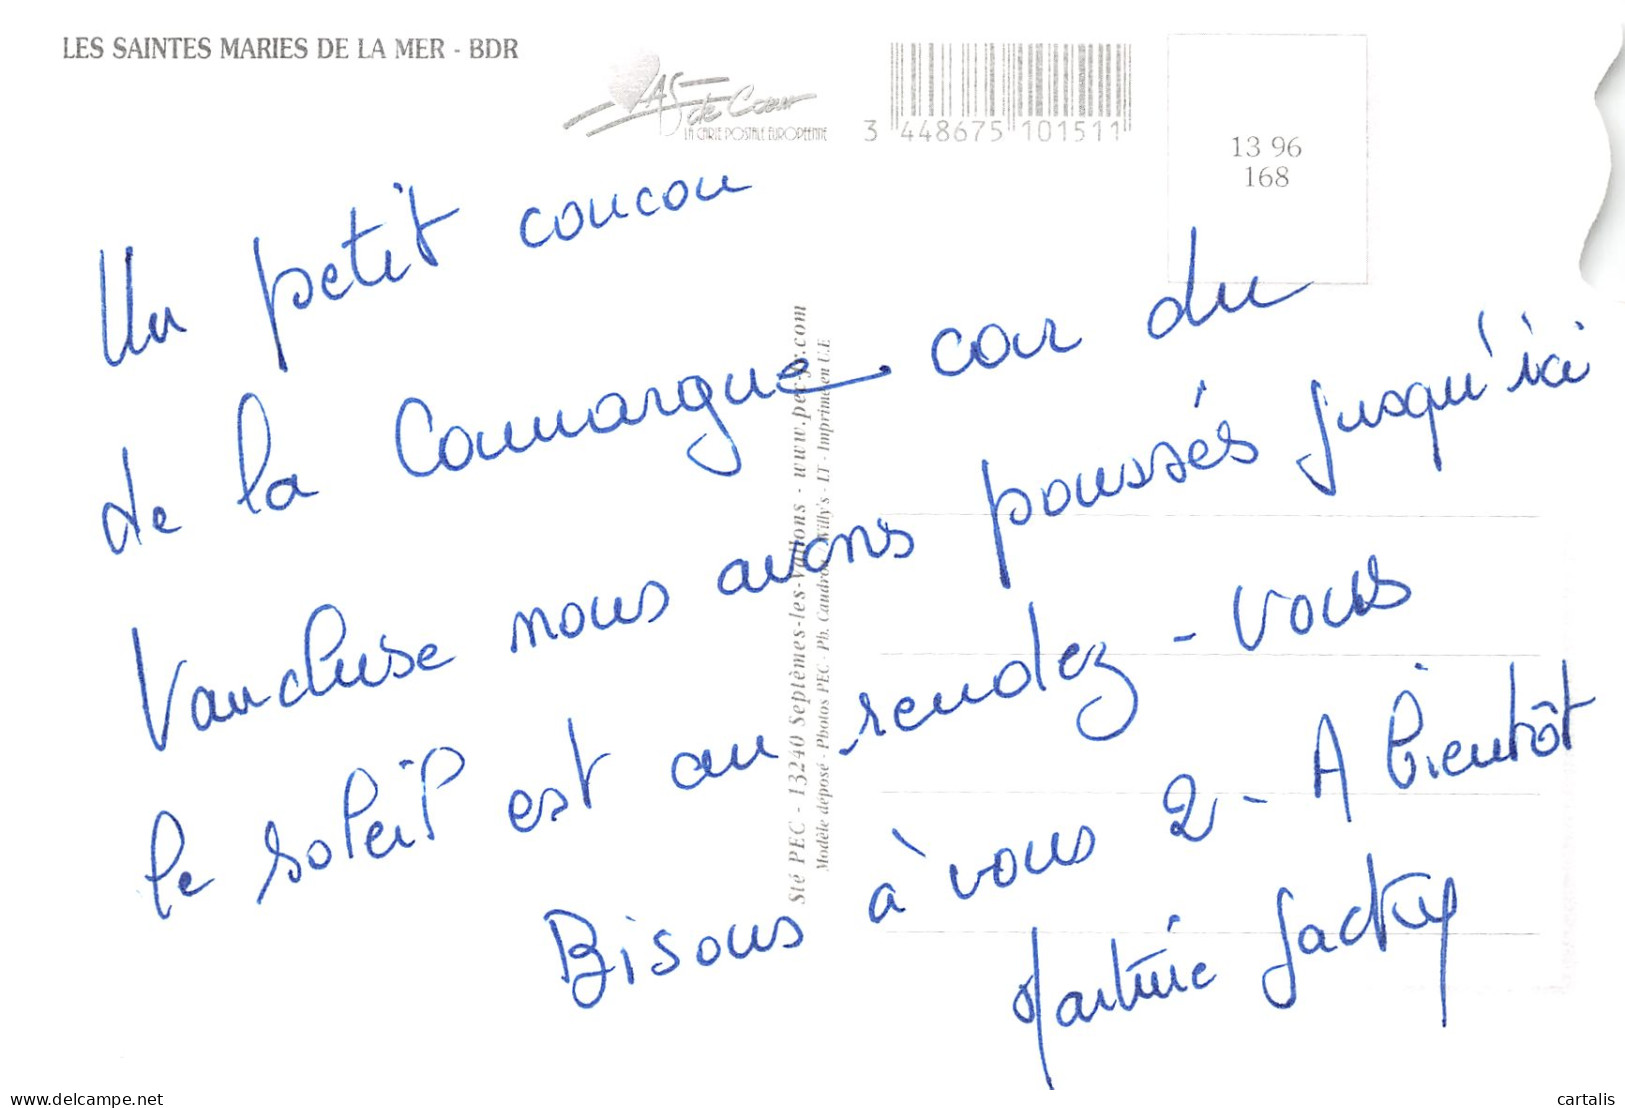 LES SAINTES MARIES DE LA MER - BDR
AS de Coeur
LA CARTE POSTALE EUROPÉENNE
3 448675 101511
13 96
168
Un petit coucou
de la Camargue car du
Vaucluse nous avons poussés jusqu'ici
le soleil est au rendez-vous
Bisous à vous 2 - A bientôt
Martine Jacky
Sté PEC - 13240 Septèmes-les-Vallons - www.pec-jr.com
Modèle déposé - Photos PEC - Ph. Willy's - LT - Imprimé en U.E
cartalis.com
cartalis